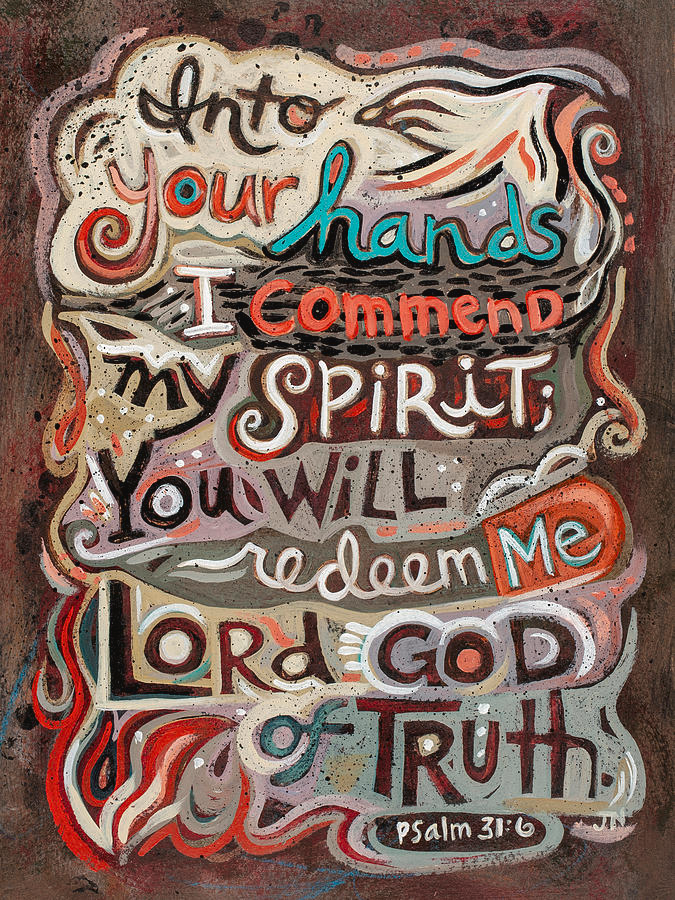 Into
your hands
I commend
my SPiRiT;
You WiLL
redeem Me
LORd GOD
of TRUTh.
PSalm 31:6
JN